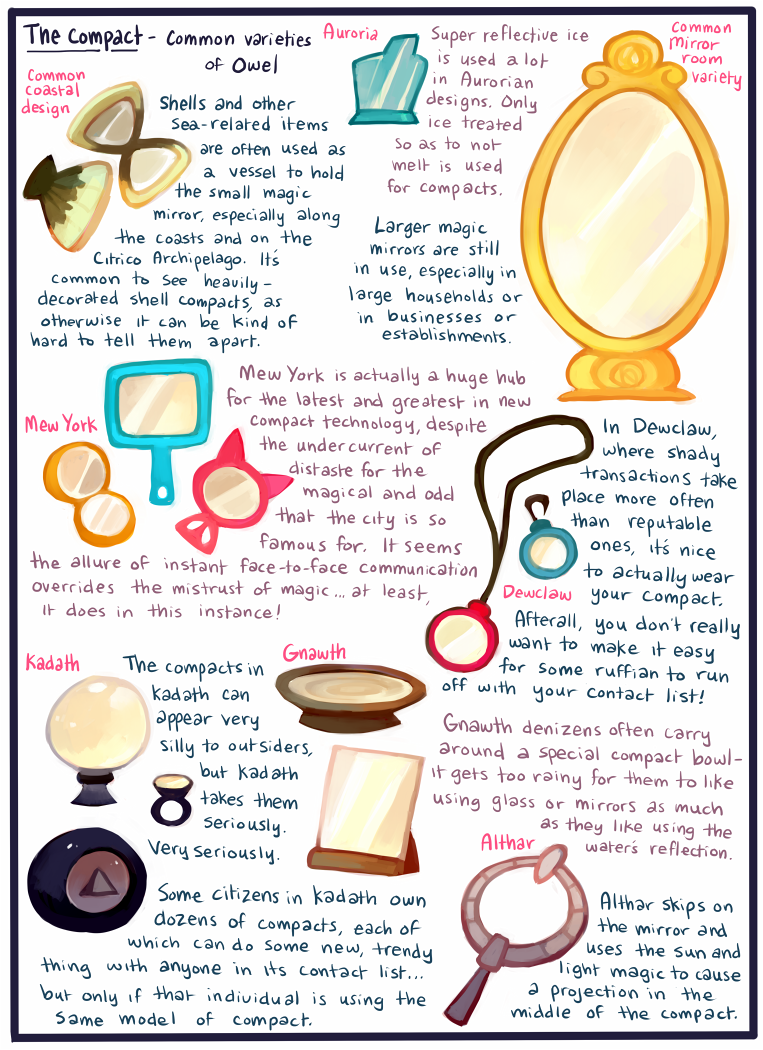 The Compact - Common varieties
of Owel
Common
coastal
design
Shells and other
sea-related items
are often used as
a vessel to hold
the small magic
mirror, especially along
the coasts and on the
Citrico Archipelago. It's
common to see heavily-
decorated shell compacts, as
otherwise it can be kind of
hard to tell them apart.
Auroria
Super reflective ice
is used a lot
in Aurorian
designs. Only
ice treated
so as to not
melt is used
for compacts.
Common
mirror
room
variety
Larger magic
mirrors are still
in use, especially in
large households or
in businesses or
establishments.
Mew York
Mew York is actually a huge hub
for the latest and greatest in new
compact technology, despite
the undercurrent of
distaste for the
magical and odd
that the city is so
famous for. It seems
the allure of instant face-to-face communication
overrides the mistrust of magic... at least,
it does in this instance!
In Dewclaw,
where shady
transactions take
place more often
than reputable
ones, it's nice
to actually wear
your compact.
Dewclaw
Afterall, you don't really
want to make it easy
for some ruffian to run
off with your contact list!
Kadath
The compacts in
Kadath can
appear very
silly to outsiders,
but Kadath
takes them
seriously.
Very seriously.
Some citizens in Kadath own
dozens of compacts, each of
which can do some new, trendy
thing with anyone in its contact list...
but only if that individual is using the
same model of compact.
Gnawth
Gnawth denizens often carry
around a special compact bowl-
it gets too rainy for them to like
using glass or mirrors as much
as they like using the
water's reflection.
Althar
Althar skips on
the mirror and
uses the sun and
light magic to cause
a projection in the
middle of the compact.